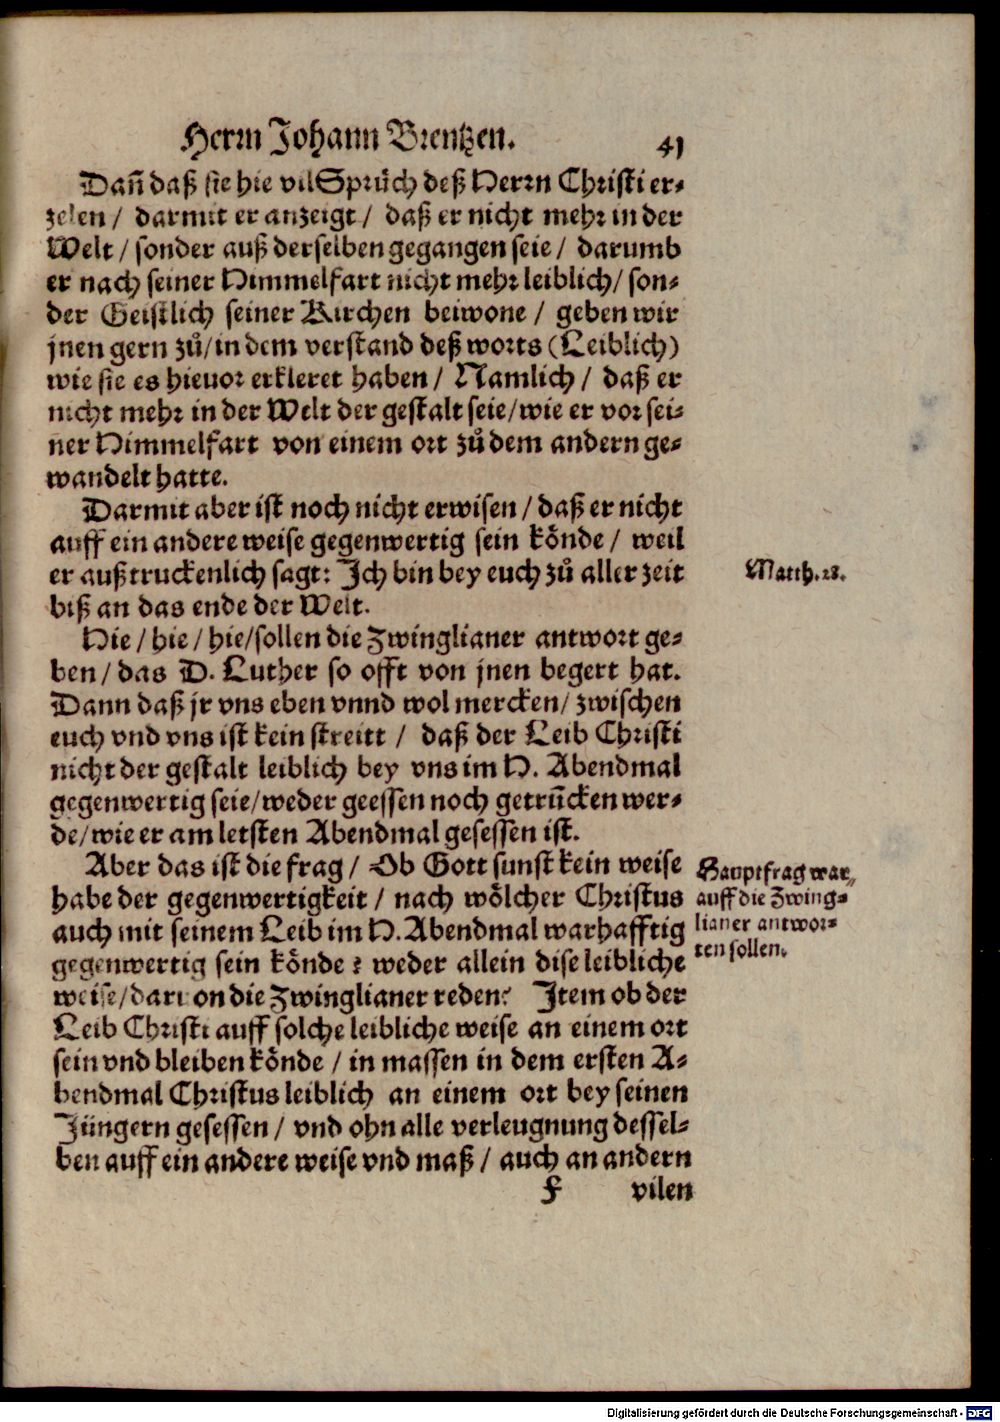 Herrn Johann Brentzen. 41
Dañ daß sie hie vil Sprüch deß Herrn Christi er-
zelen / darmit er anzeigt / daß er nicht mehr in der
Welt / sonder auß derselben gegangen seie / darumb
er nach seiner Himmelfart nicht mehr leiblich / son-
der Geistlich seiner Kirchen beiwone / geben wir
jnen gern zů / in dem verstand deß worts (Leiblich)
wie sie es hieuor erkleret haben / Namlich / daß er
nicht mehr in der Welt der gestalt seie / wie er vor sei-
ner Himmelfart von einem ort zů dem andern ge-
wandelt hatte.
Darmit aber ist noch nicht erwisen / daß er nicht
auff ein andere weise gegenwertig sein könde / weil
er außtruckenlich sagt: Ich bin bey euch zů aller zeit
biß an das ende der Welt.
Matth. 28.
Hie / hie / hie / sollen die Zwinglianer antwort ge-
ben / das D. Luther so offt von jnen begert hat.
Dann daß jr vns eben vnnd wol mercken / zwischen
euch vnd vns ist kein streitt / daß der Leib Christi
nicht der gestalt leiblich bey vns im H. Abendmal
gegenwertig seie / weder geessen noch getruncken wer-
de / wie er am letsten Abendmal gesessen ist.
Aber das ist die frag / Ob Gott sunst kein weise
habe der gegenwertigkeit / nach wölcher Christus
auch mit seinem Leib im H. Abendmal warhafftig
gegenwertig sein könde? weder allein dise leibliche
weise / daruon die Zwinglianer reden? Item ob der
Leib Christi auff solche leibliche weise an einem ort
sein vnd bleiben könde / in massen in dem ersten A-
bendmal Christus leiblich an einem ort bey seinen
Jüngern gesessen / vnd ohn alle verleugnung dessel-
ben auff ein andere weise vnd maß / auch an andern
Hauptfrag war-
auff die Zwing-
lianer antwor-
ten sollen.
f vilen
Digitalisierung gefördert durch die Deutsche Forschungsgemeinschaft - DFG